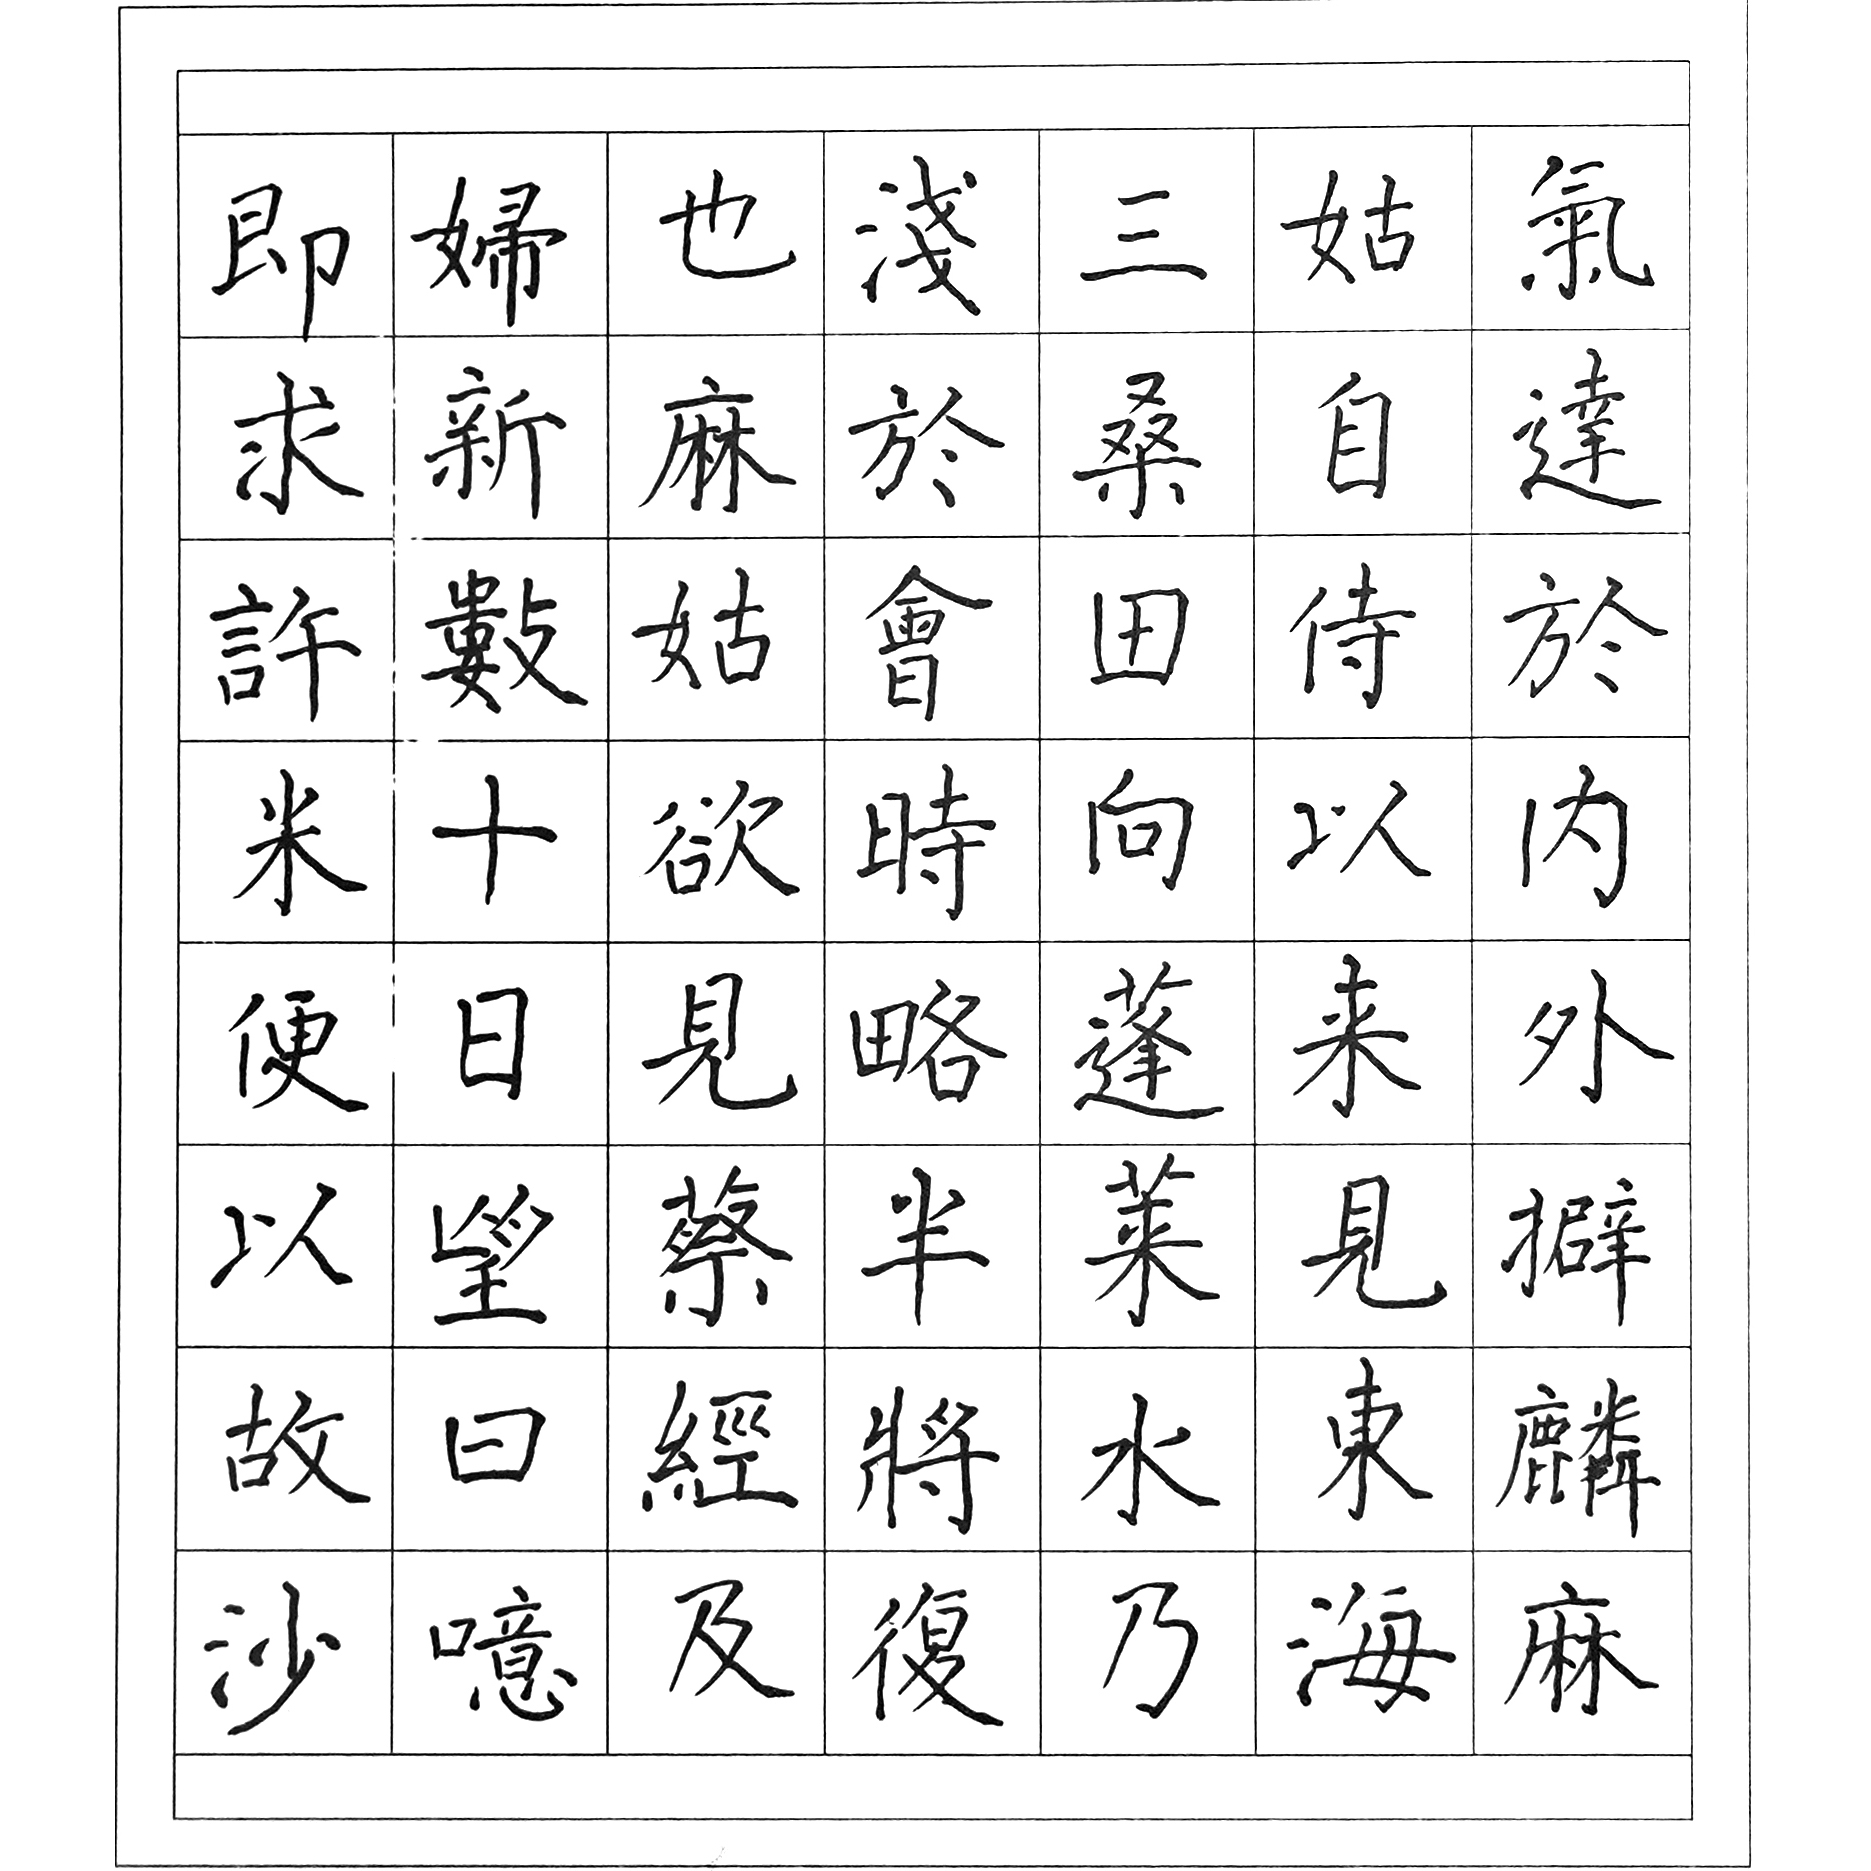 氣達於内外擗麟麻
姑自侍以来見東海
三桑田向蓬莱水乃
淺於會時略半將復
也麻姑欲見蔡經及
婦新數十日望曰噫
即求許米便以故沙